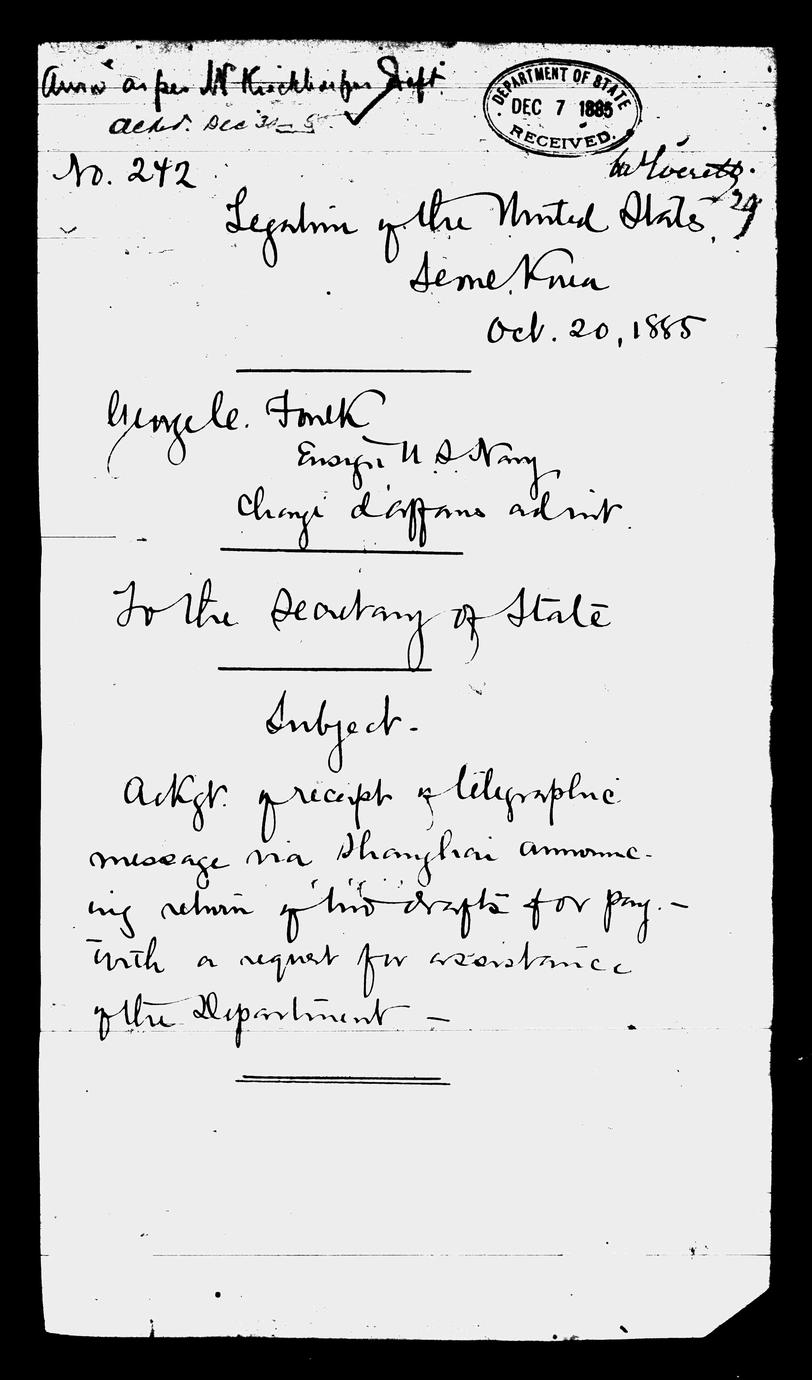 Answd as per Mr Kieckhoefer Draft
Ackd. Dec 31 - 5
DEPARTMENT OF STATE
DEC 7 1885
RECEIVED.
Mr Everett
No. 242
Legation of the United States,
Seoul, Korea
Oct. 20, 1885
George C. Foulk
Ensign U.S. Navy
Chargé d'affaires ad int.
To the Secretary of State
Subject.-
Ackgt. of receipt of telegraphic
message via Shanghai announc-
ing return of two drafts for pay.-
with a request for assistance
of the Department -